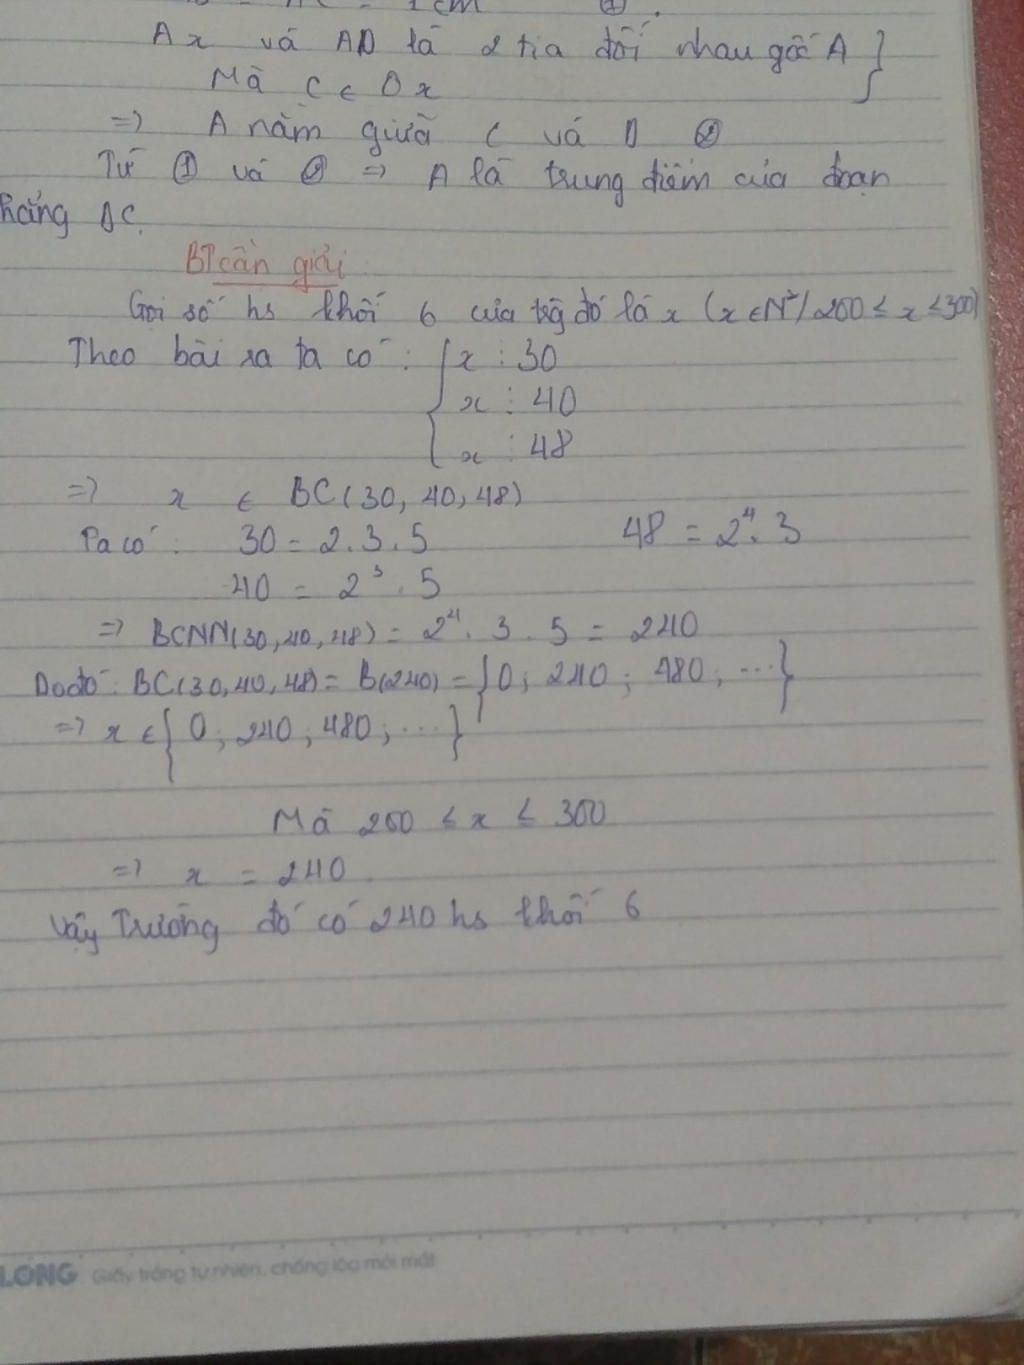 = 1cm ①.
Ax và AD là 2 tia đối nhau gốc A }
Mà C ∈ Dx
=> A nằm giữa C và D ②
Từ ① và ② => A là trung điểm của đoạn
thẳng DC.
BT cần giải
Gọi số hs khối 6 của trg đó là x (x ∈ N*/ 200 ≤ x ≤ 300)
Theo bài ra ta có : { x ⋮ 30
x ⋮ 40
x ⋮ 48
=> x ∈ BC(30, 40, 48)
Ta có : 30 = 2.3.5 48 = 2⁴.3
40 = 2³.5
=> BCNN(30, 40, 48) = 2⁴.3.5 = 240
Do đó : BC(30, 40, 48) = B(240) = {0; 240; 480; ...}
=> x ∈ {0; 240; 480; ...}
Mà 200 ≤ x ≤ 300
=> x = 240
Vậy Trường đó có 240 hs khối 6
LONG Giấy trắng tự nhiên, chống lóa mỏi mắt